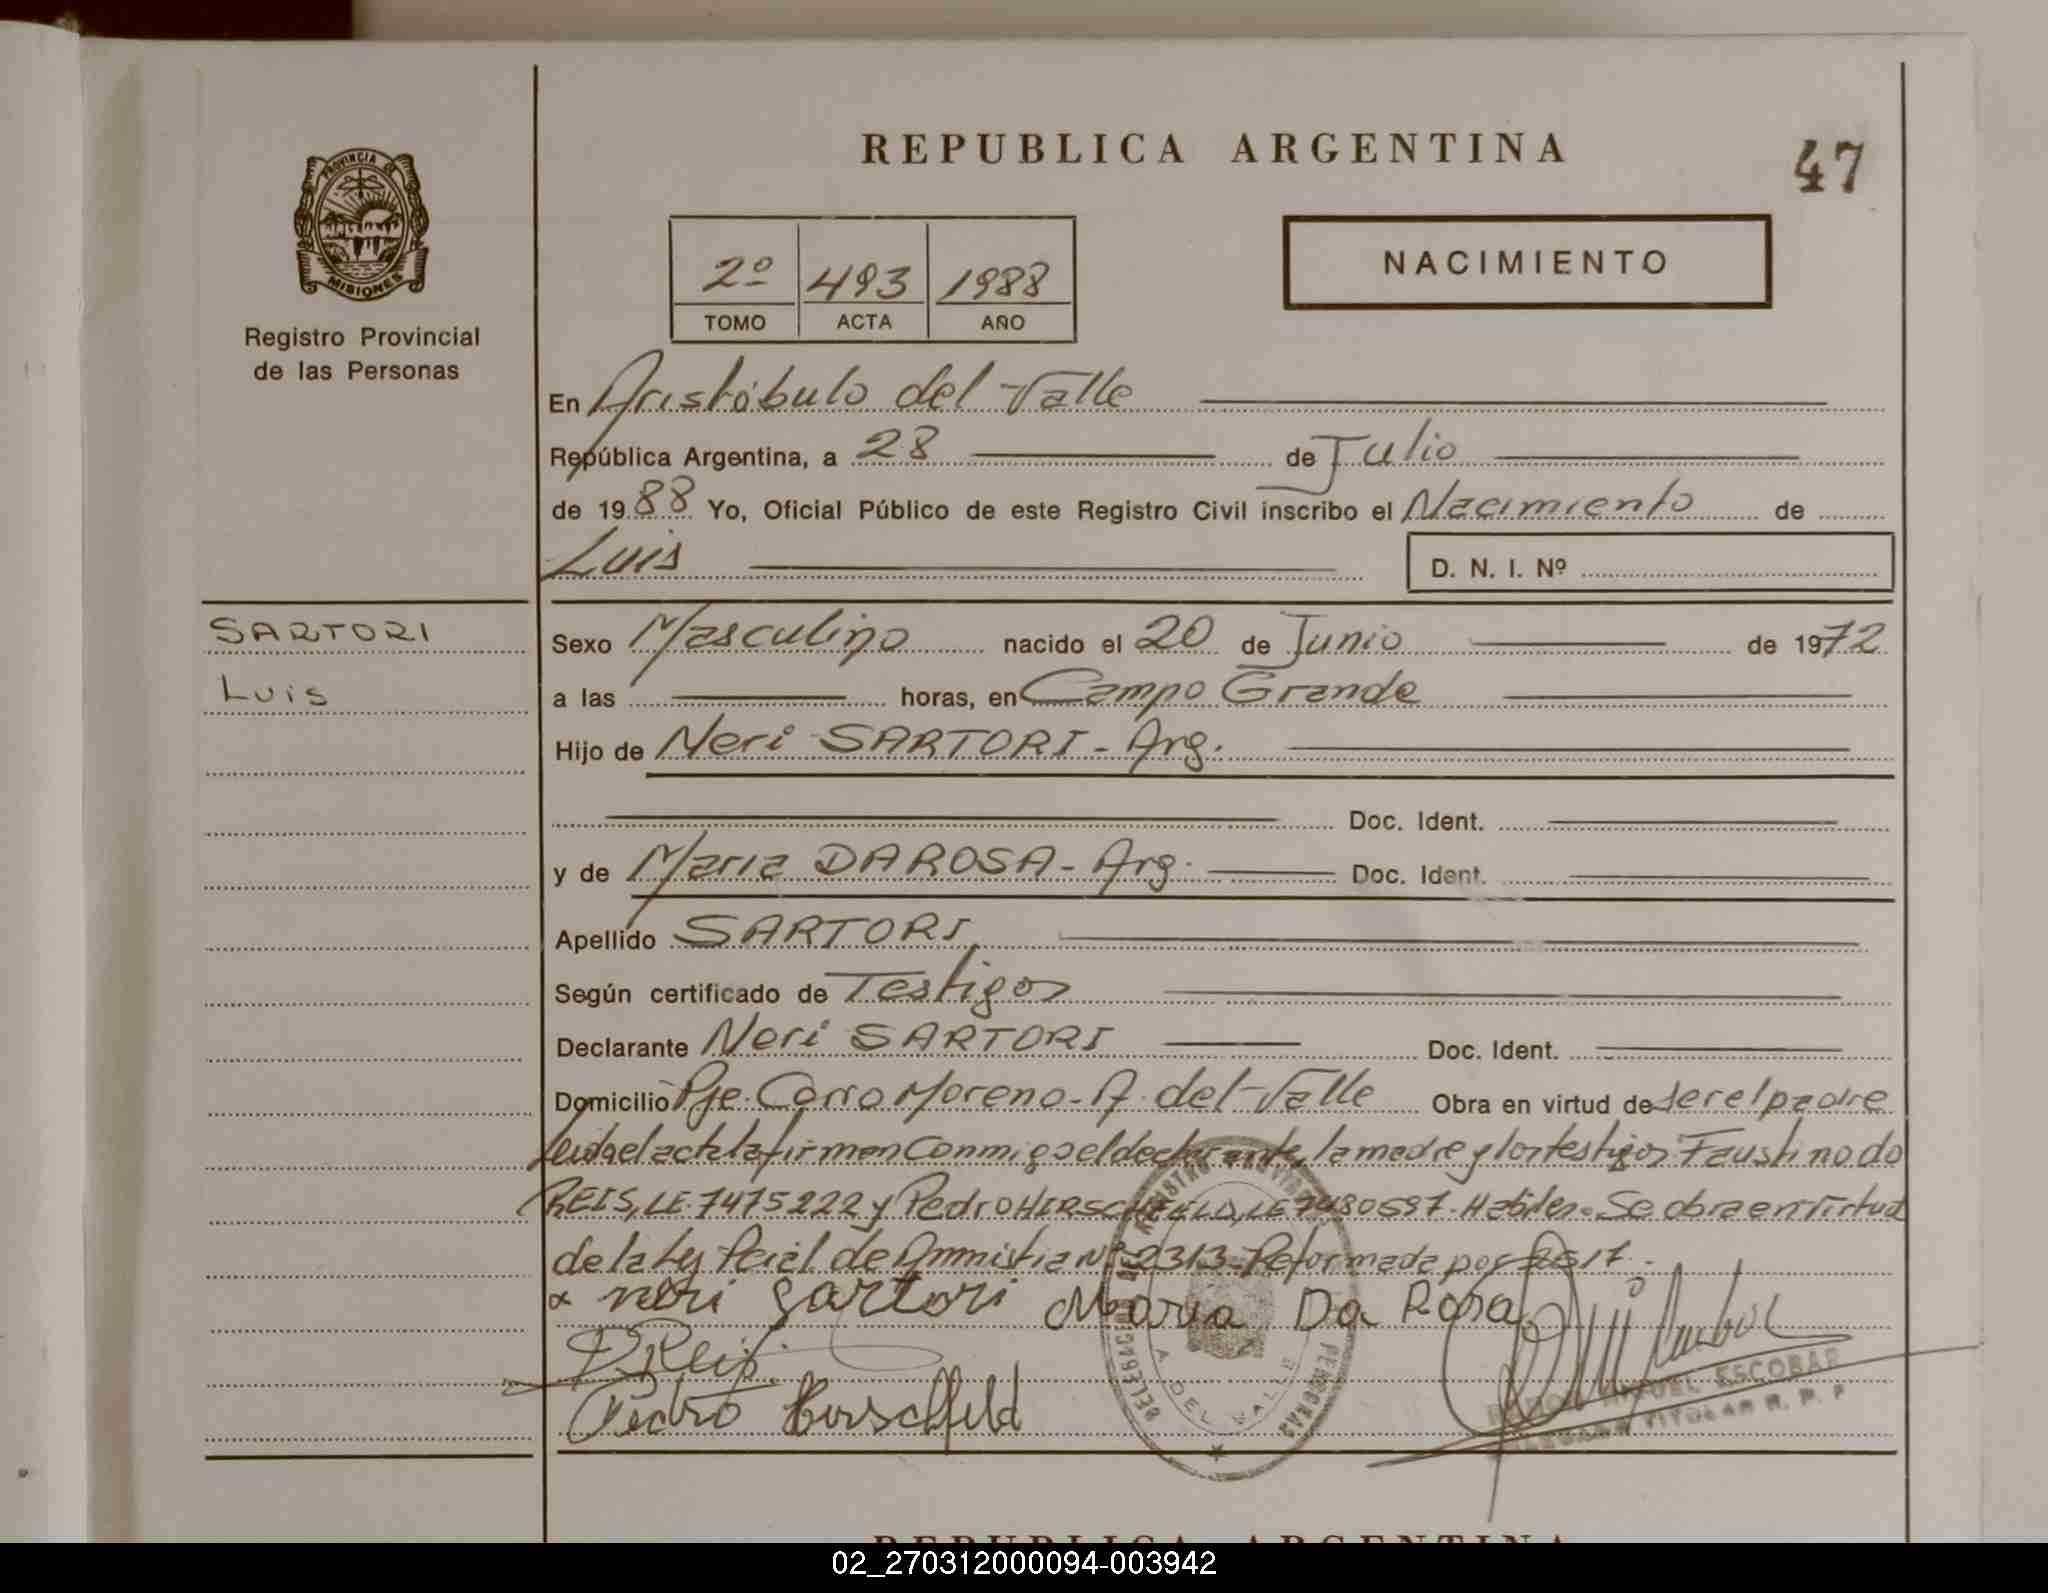 REPUBLICA ARGENTINA
47
PROVINCIA DE
MISIONES
Registro Provincial
de las Personas
2º 493 1988
TOMO ACTA AÑO
NACIMIENTO
En Aristóbulo del Valle
República Argentina, a 28 de Julio
de 1988 Yo, Oficial Público de este Registro Civil inscribo el Nacimiento de
Luis
D. N. I. Nº
SARTORI
Luis
Sexo Masculino nacido el 20 de Junio de 1972
a las horas, en Campo Grande
Hijo de Neri SARTORI - Arg.
Doc. Ident.
y de Maria DAROSA - Arg. Doc. Ident.
Apellido SARTORI
Según certificado de Testigos
Declarante Neri SARTORI Doc. Ident.
Domicilio Pje. Corro Moreno - A. del Valle Obra en virtud de ser el padre
Leida el acta la firman conmigo el declarante, la madre y los testigos Faustino do
REIS, LE. 7475222 y Pedro HIRSCHFELD, LE 7480597. Habiles. Se obra en virtud
de la Ley Pcial. de Ammistia Nº 2313. Reformada por 2617.
neri sartori Maria Da Rosa
Reis
Pedro Hirschfeld
DELEGACION DEL REGISTRO PROVINCIAL PERSONAS
A. DEL VALLE
MIGUEL ESCOBAR
TITULAR R. P. P
REPUBLICA ARGENTINA
02_270312000094-003942